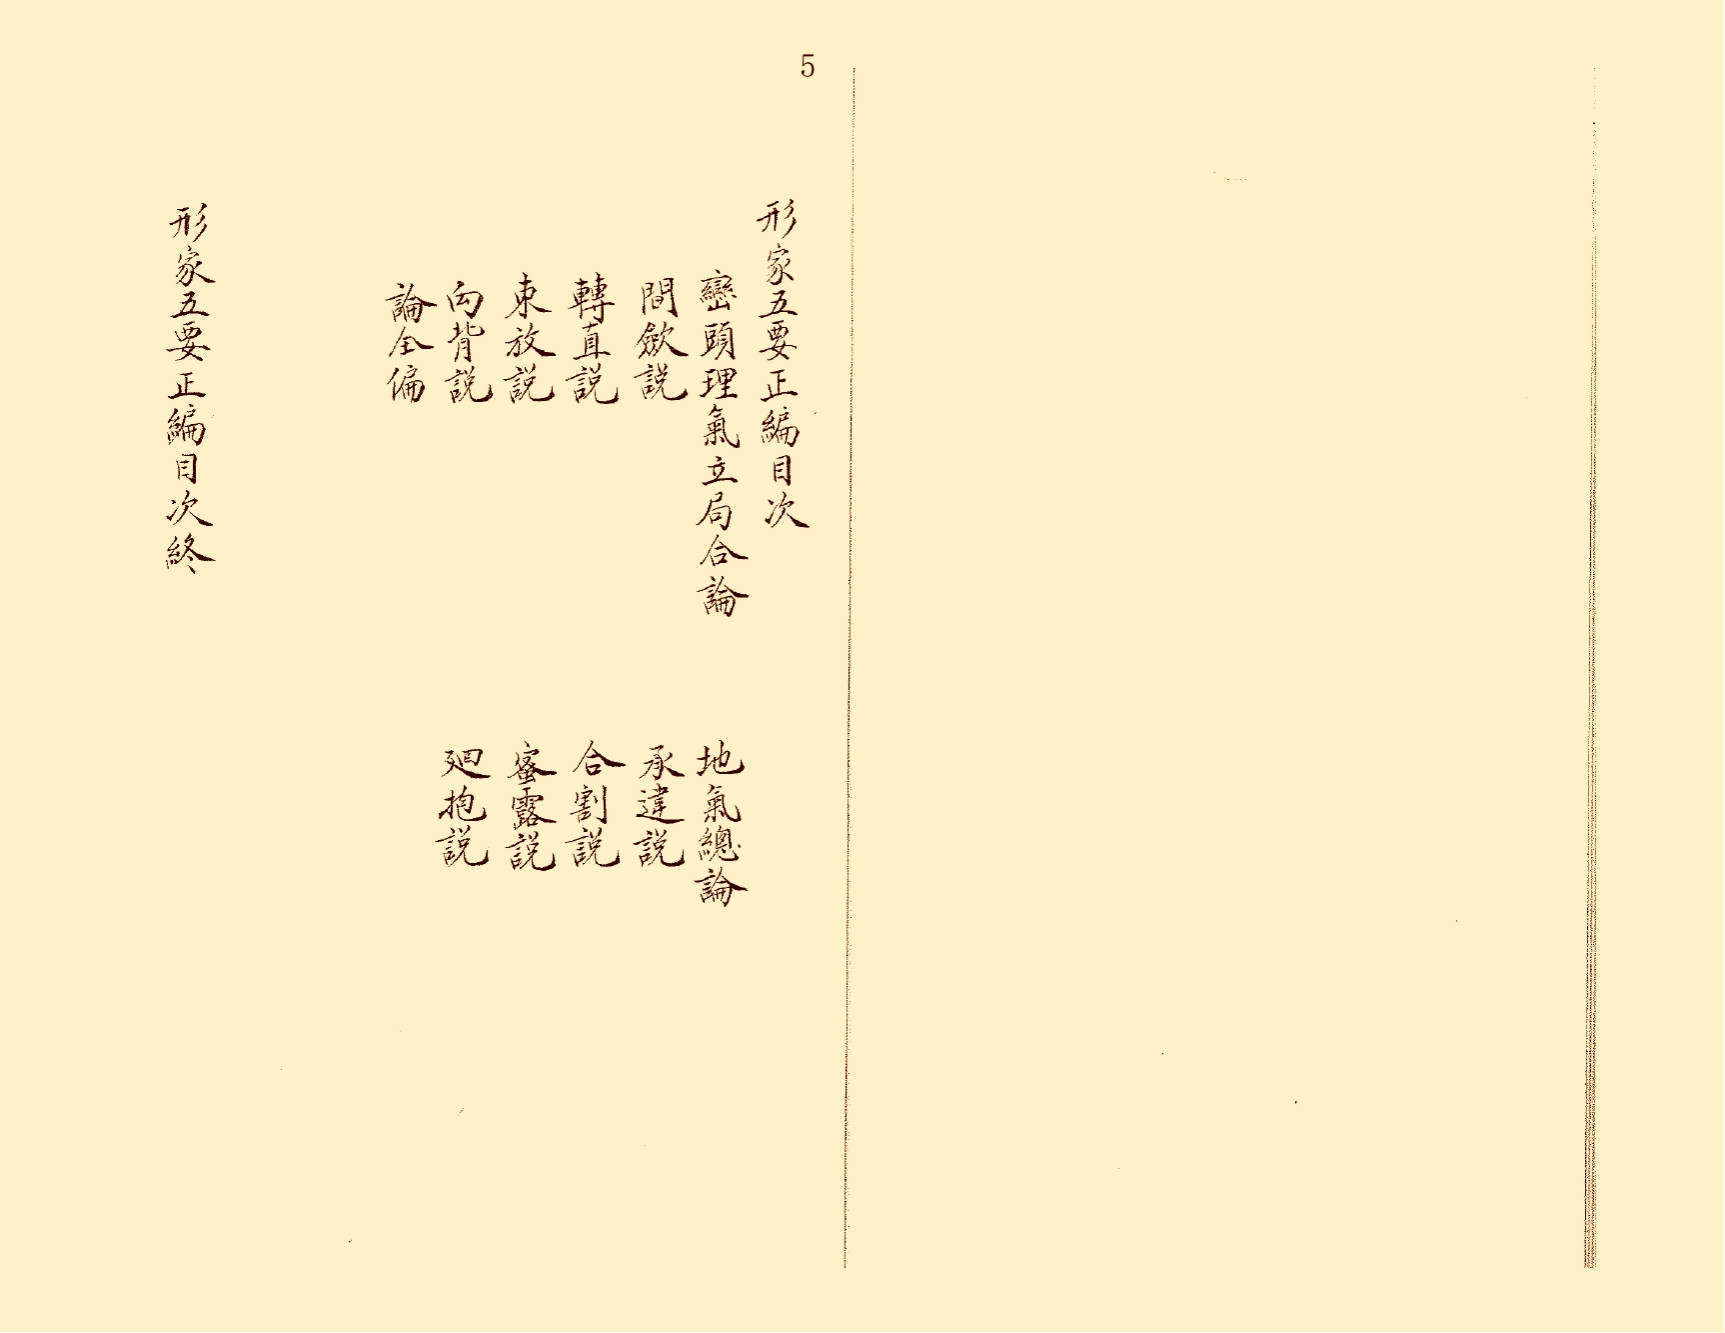 5
形家五要正編目次
巒頭理氣立局合論
地氣總論
間斂説
承違説
轉直説
合割説
束放説
蜜露説
向背説
廻抱説
論全偏
形家五要正編目次終